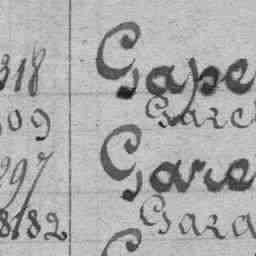 318 Gape
309 Garc
297 Gare
8182 Gara